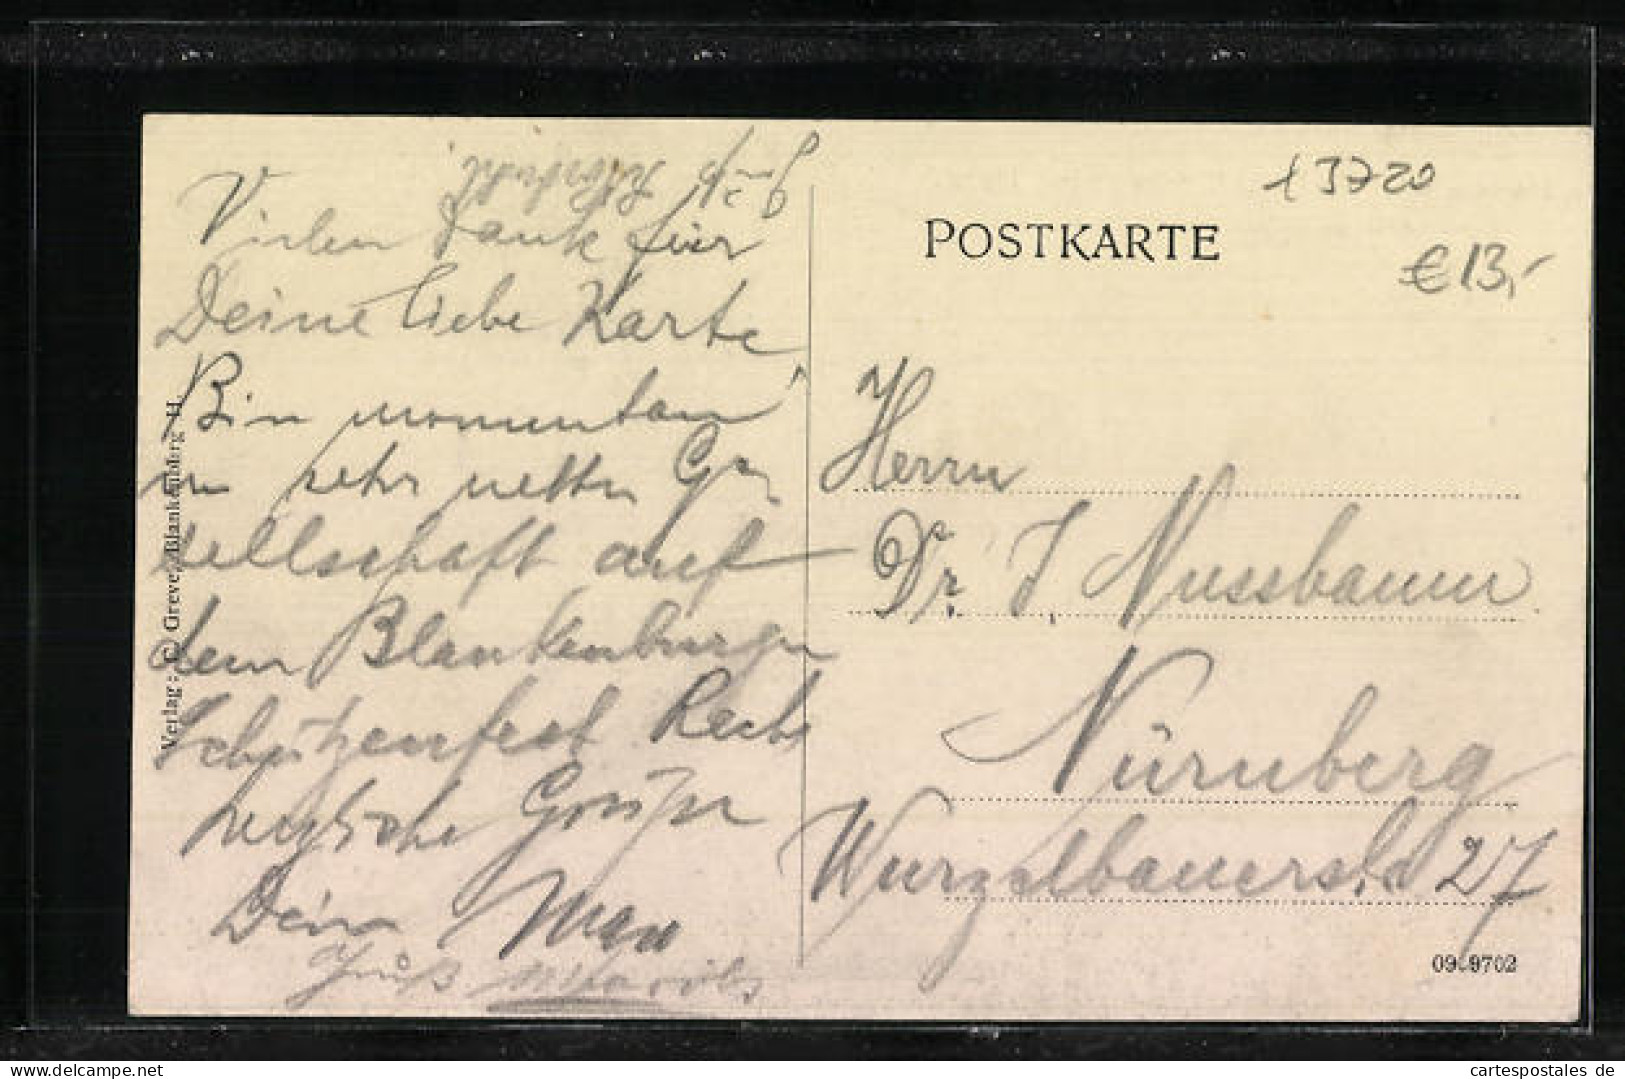 Vielen Dank für
Deine liebe Karte,
Bin momentan
in sehr netter Ge-
sellschaft auf
dem Blankenburger
Schützenfest Recht
herzliche Grüsse
Dein Max
Gruß
Gruß
Verlag: C. Greve, Blankenberg H.
POSTKARTE
13720
€ 13,-
Herrn
Dr. J. Nussbaum
Nürnberg
Wurzelbauerstr. 27
09 9702
delcampe.net
cartespostales de